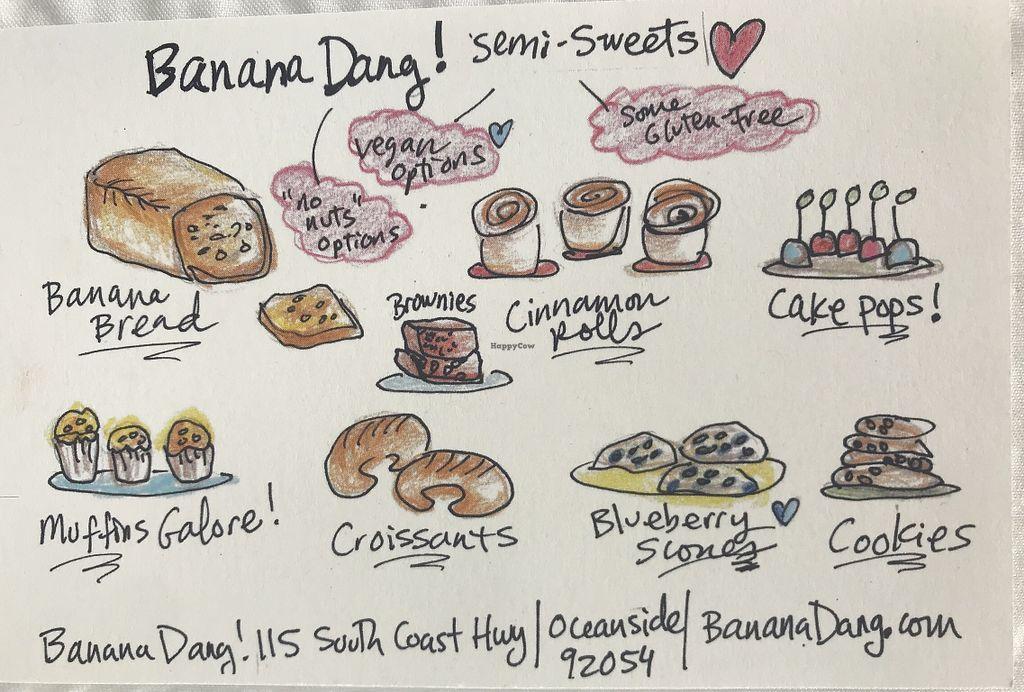 Banana Dang! Semi-Sweets
vegan
options
some
Gluten-Free
"no
nuts"
options
Banana
Bread
Brownies
Cinnamon
Rolls
Cake pops!
HappyCow
Muffins Galore!
Croissants
Blueberry
Scones
Cookies
Banana Dang! 115 South Coast Hwy | Oceanside | BananaDang.com
92054